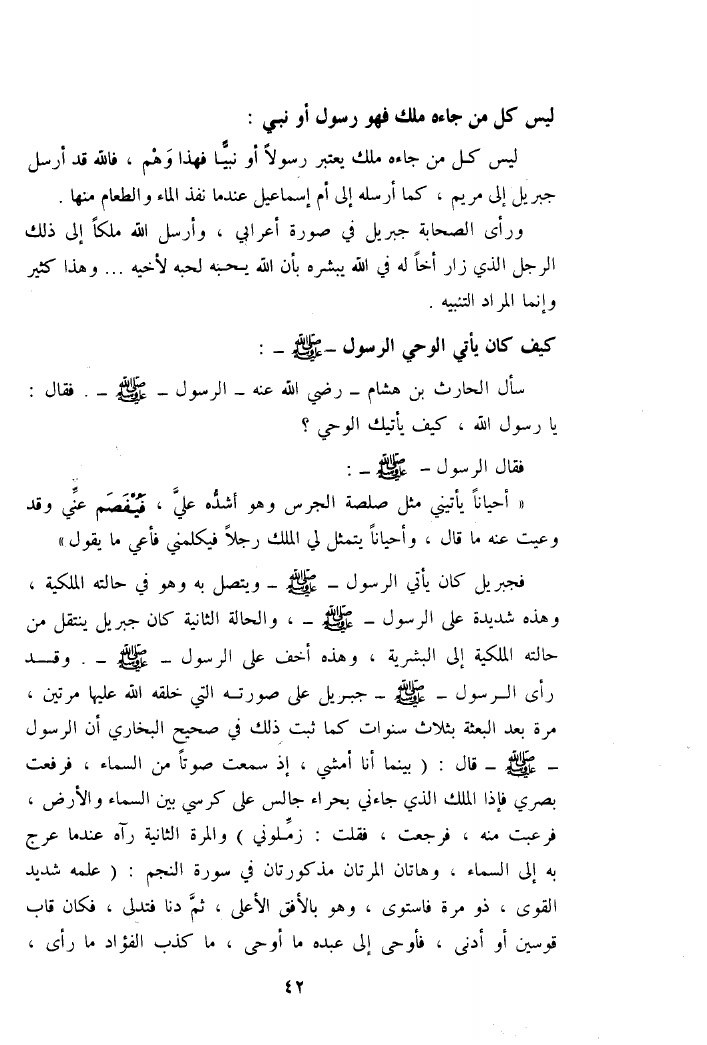 ليس كل من جاءه ملك فهو رسول أو نبي :
ليس كل من جاءه ملك يعتبر رسولاً أو نبيًّا فهذا وَهْم ، فالله قد أرسل
جبريل إلى مريم ، كما أرسله إلى أم إسماعيل عندما نفذ الماء والطعام منها .
ورأى الصحابة جبريل في صورة أعرابي ، وأرسل الله ملكاً إلى ذلك
الرجل الذي زار أخاً له في الله يبشره بأن الله يحبّه لحبه لأخيه ... وهذا كثير
وإنما المراد التنبيه .
كيف كان يأتي الوحي الرسول – ﷺ – :
سأل الحارث بن هشام – رضي الله عنه – الرسول – ﷺ – . فقال :
يا رسول الله ، كيف يأتيك الوحي ؟
فقال الرسول – ﷺ – :
« أحياناً يأتيني مثل صلصة الجرس وهو أشدُّه عليَّ ، فَيُفْصَم عنِّي وقد
وعيت عنه ما قال ، وأحياناً يتمثل لي الملك رجلاً فيكلمني فأعي ما يقول »
فجبريل كان يأتي الرسول – ﷺ – ويتصل به وهو في حالته الملكية ،
وهذه شديدة على الرسول – ﷺ – ، والحالة الثانية كان جبريل ينتقل من
حالته الملكية إلى البشرية ، وهذه أخف على الرسول – ﷺ – . وقد
رأى الرسول – ﷺ – جبريل على صورته التي خلقه الله عليها مرتين ،
مرة بعد البعثة بثلاث سنوات كما ثبت ذلك في صحيح البخاري أن الرسول
– ﷺ – قال : ( بينما أنا أمشي ، إذ سمعت صوتاً من السماء ، فرفعت
بصري فإذا الملك الذي جاءني بحراء جالس على كرسي بين السماء والأرض ،
فرعبت منه ، فرجعت ، فقلت : زمِّلوني ) والمرة الثانية رآه عندما عرج
به إلى السماء ، وهاتان المرتان مذكورتان في سورة النجم : ( علمه شديد
القوى ، ذو مرة فاستوى ، وهو بالأفق الأعلى ، ثمَّ دنا فتدلى ، فكان قاب
قوسين أو أدنى ، فأوحى إلى عبده ما أوحى ، ما كذب الفؤاد ما رأى ،
٤٢